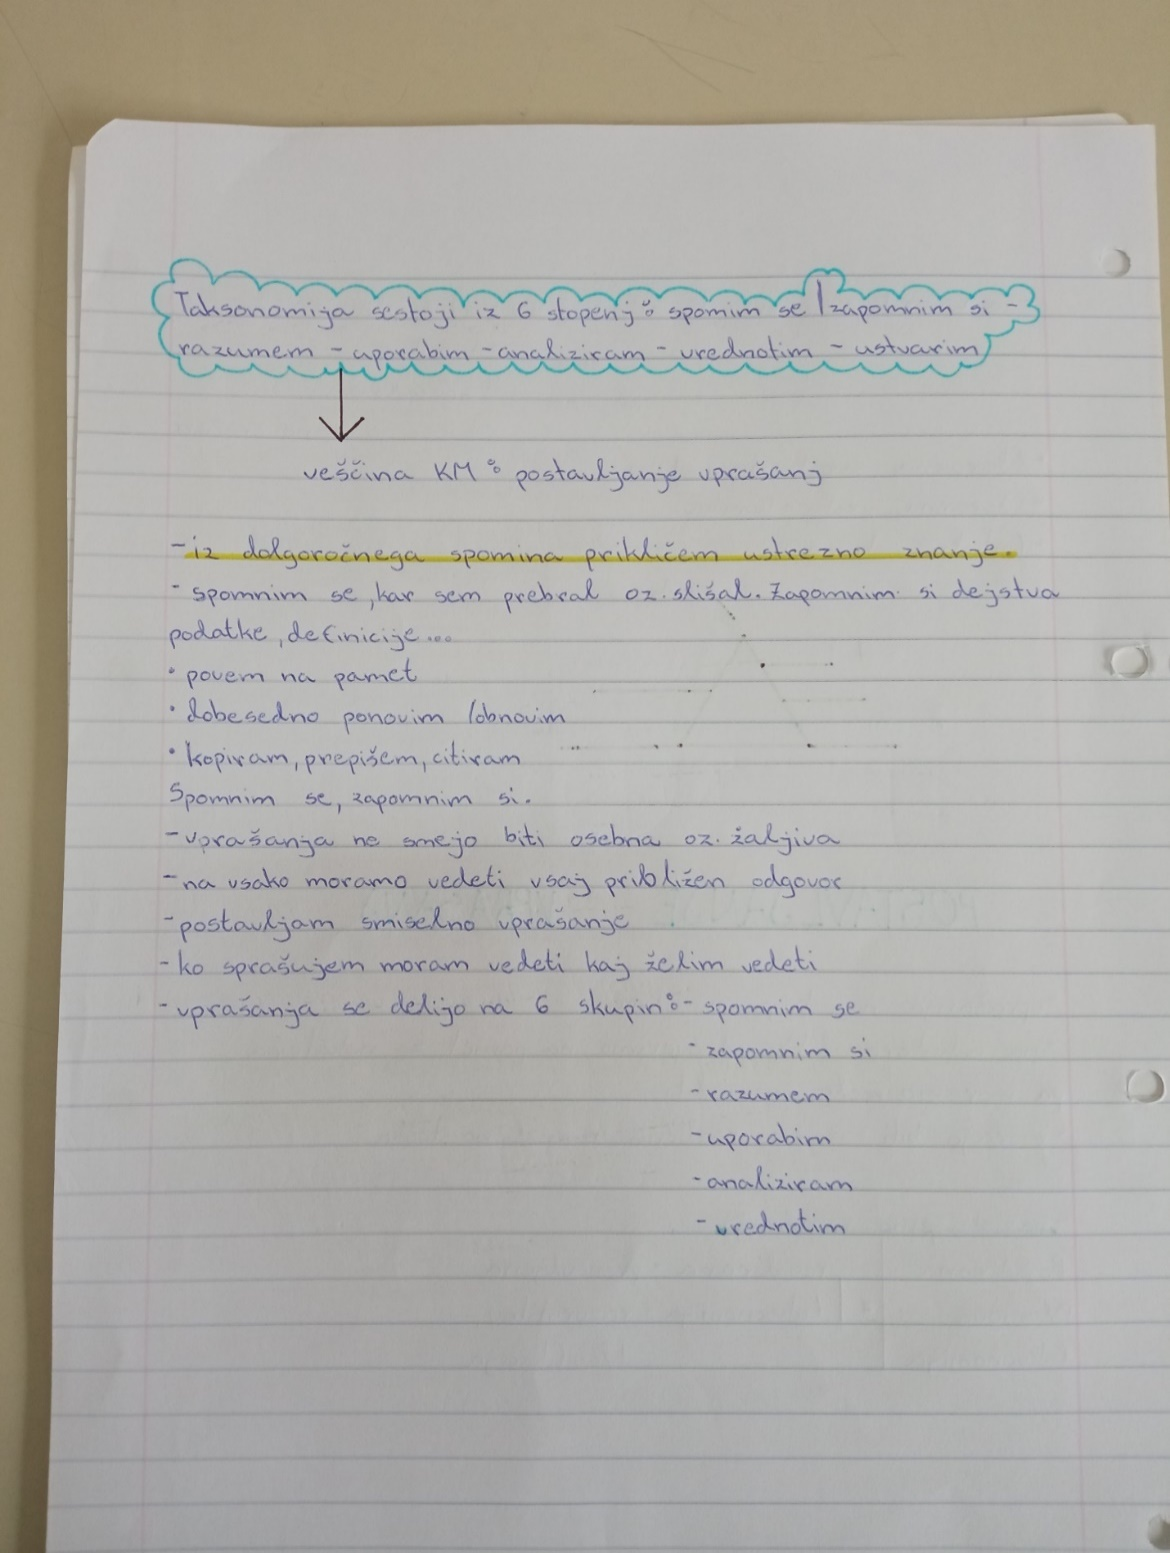 Taksonomija sestoji iz 6 stopenj: spomim se /zapomnim si -
razumem - uporabim - analiziram - vrednotim - ustvarim
veščina KM: postavljanje vprašanj
- iz dolgoročnega spomina prikličem ustrezno znanje.
- spomnim se, kar sem prebral oz. slišal. Zapomnim si dejstva
podatke, definicije...
• povem na pamet
• dobesedno ponovim /obnovim
• kopiram, prepišem, citiram
Spomnim se, zapomnim si.
- vprašanja ne smejo biti osebna oz. žaljiva
- na vsako moramo vedeti vsaj približen odgovor
- postavljam smiselno vprašanje
- ko sprašujem moram vedeti kaj želim vedeti
- vprašanja se delijo na 6 skupin: - spomnim se
- zapomnim si
- razumem
- uporabim
- analiziram
- vrednotim